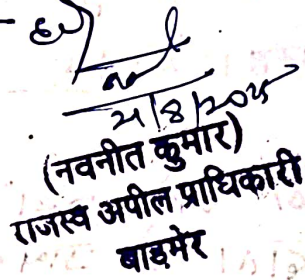 21/8/2025
(नवनीत कुमार)
राजस्व अपील प्राधिकारी
बाड़मेर